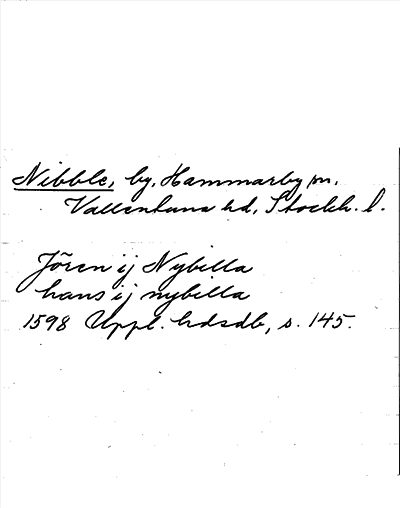 Nibble, by, Hammarby sn.
Vallentuna hd, Stockh. l.
Jören ij Nybilla
hans ij nybilla
1598 Uppl. hdsdb, s. 145.